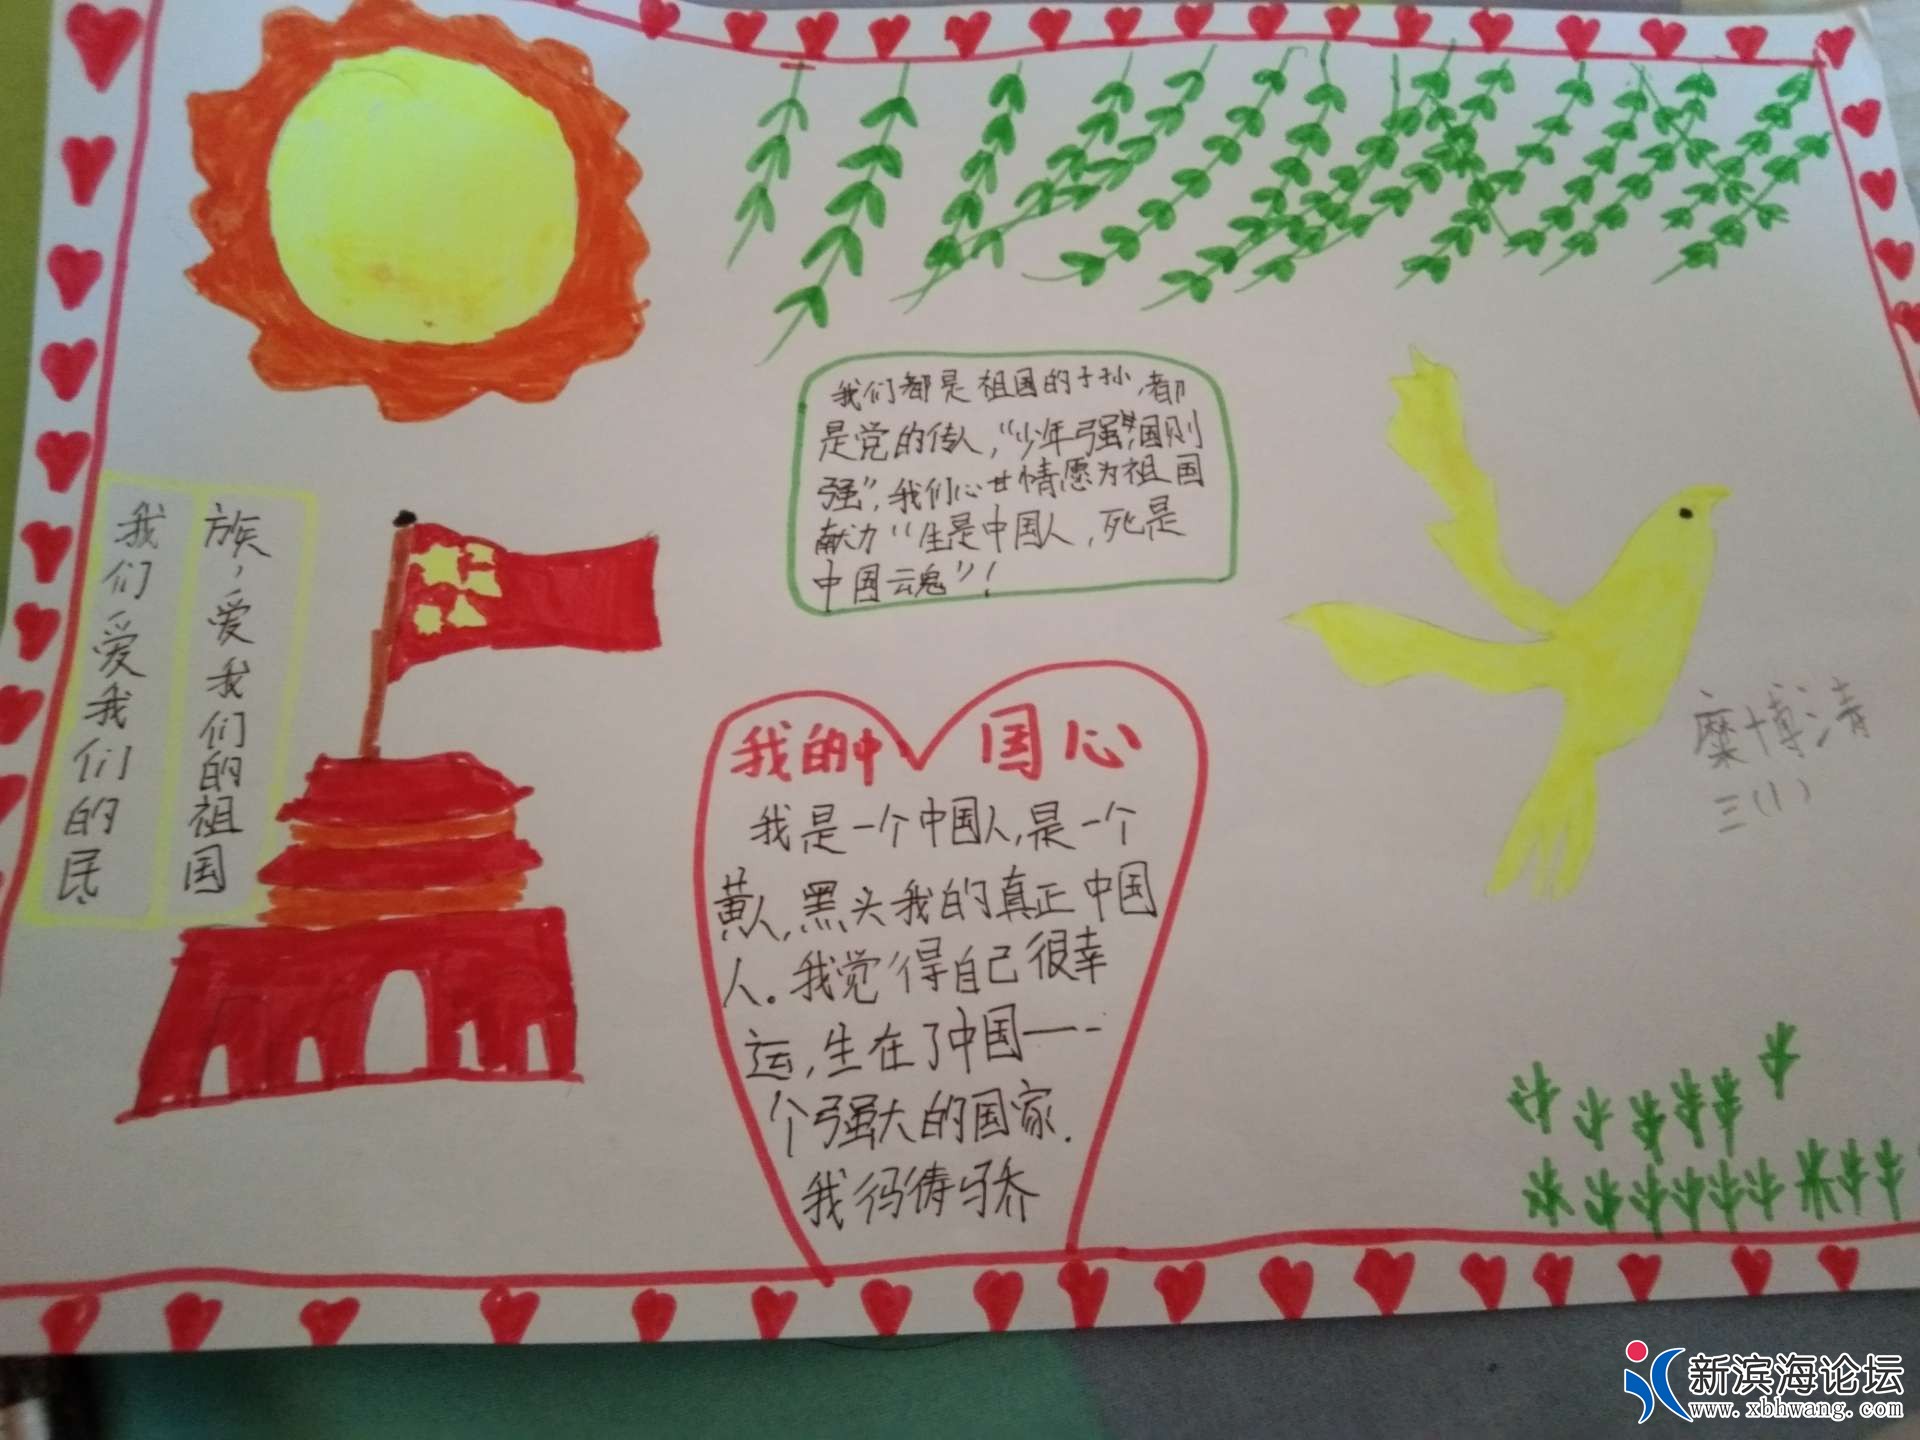 我们都是祖国的子孙,都
是党的传人,“少年强,国则
强”,我们心甘情愿为祖国
献力“生是中国人,死是
中国云魂”!
我们爱我们的民
族,爱我们的祖国
我的中国心
我是一个中国人,是一个
黄人,黑头我的真正中国
人。我觉得自己很幸
运,生在了中国一--
个强大的国家.
我得骄
糜博清
三(1)
新滨海论坛
www.xbhwang.com